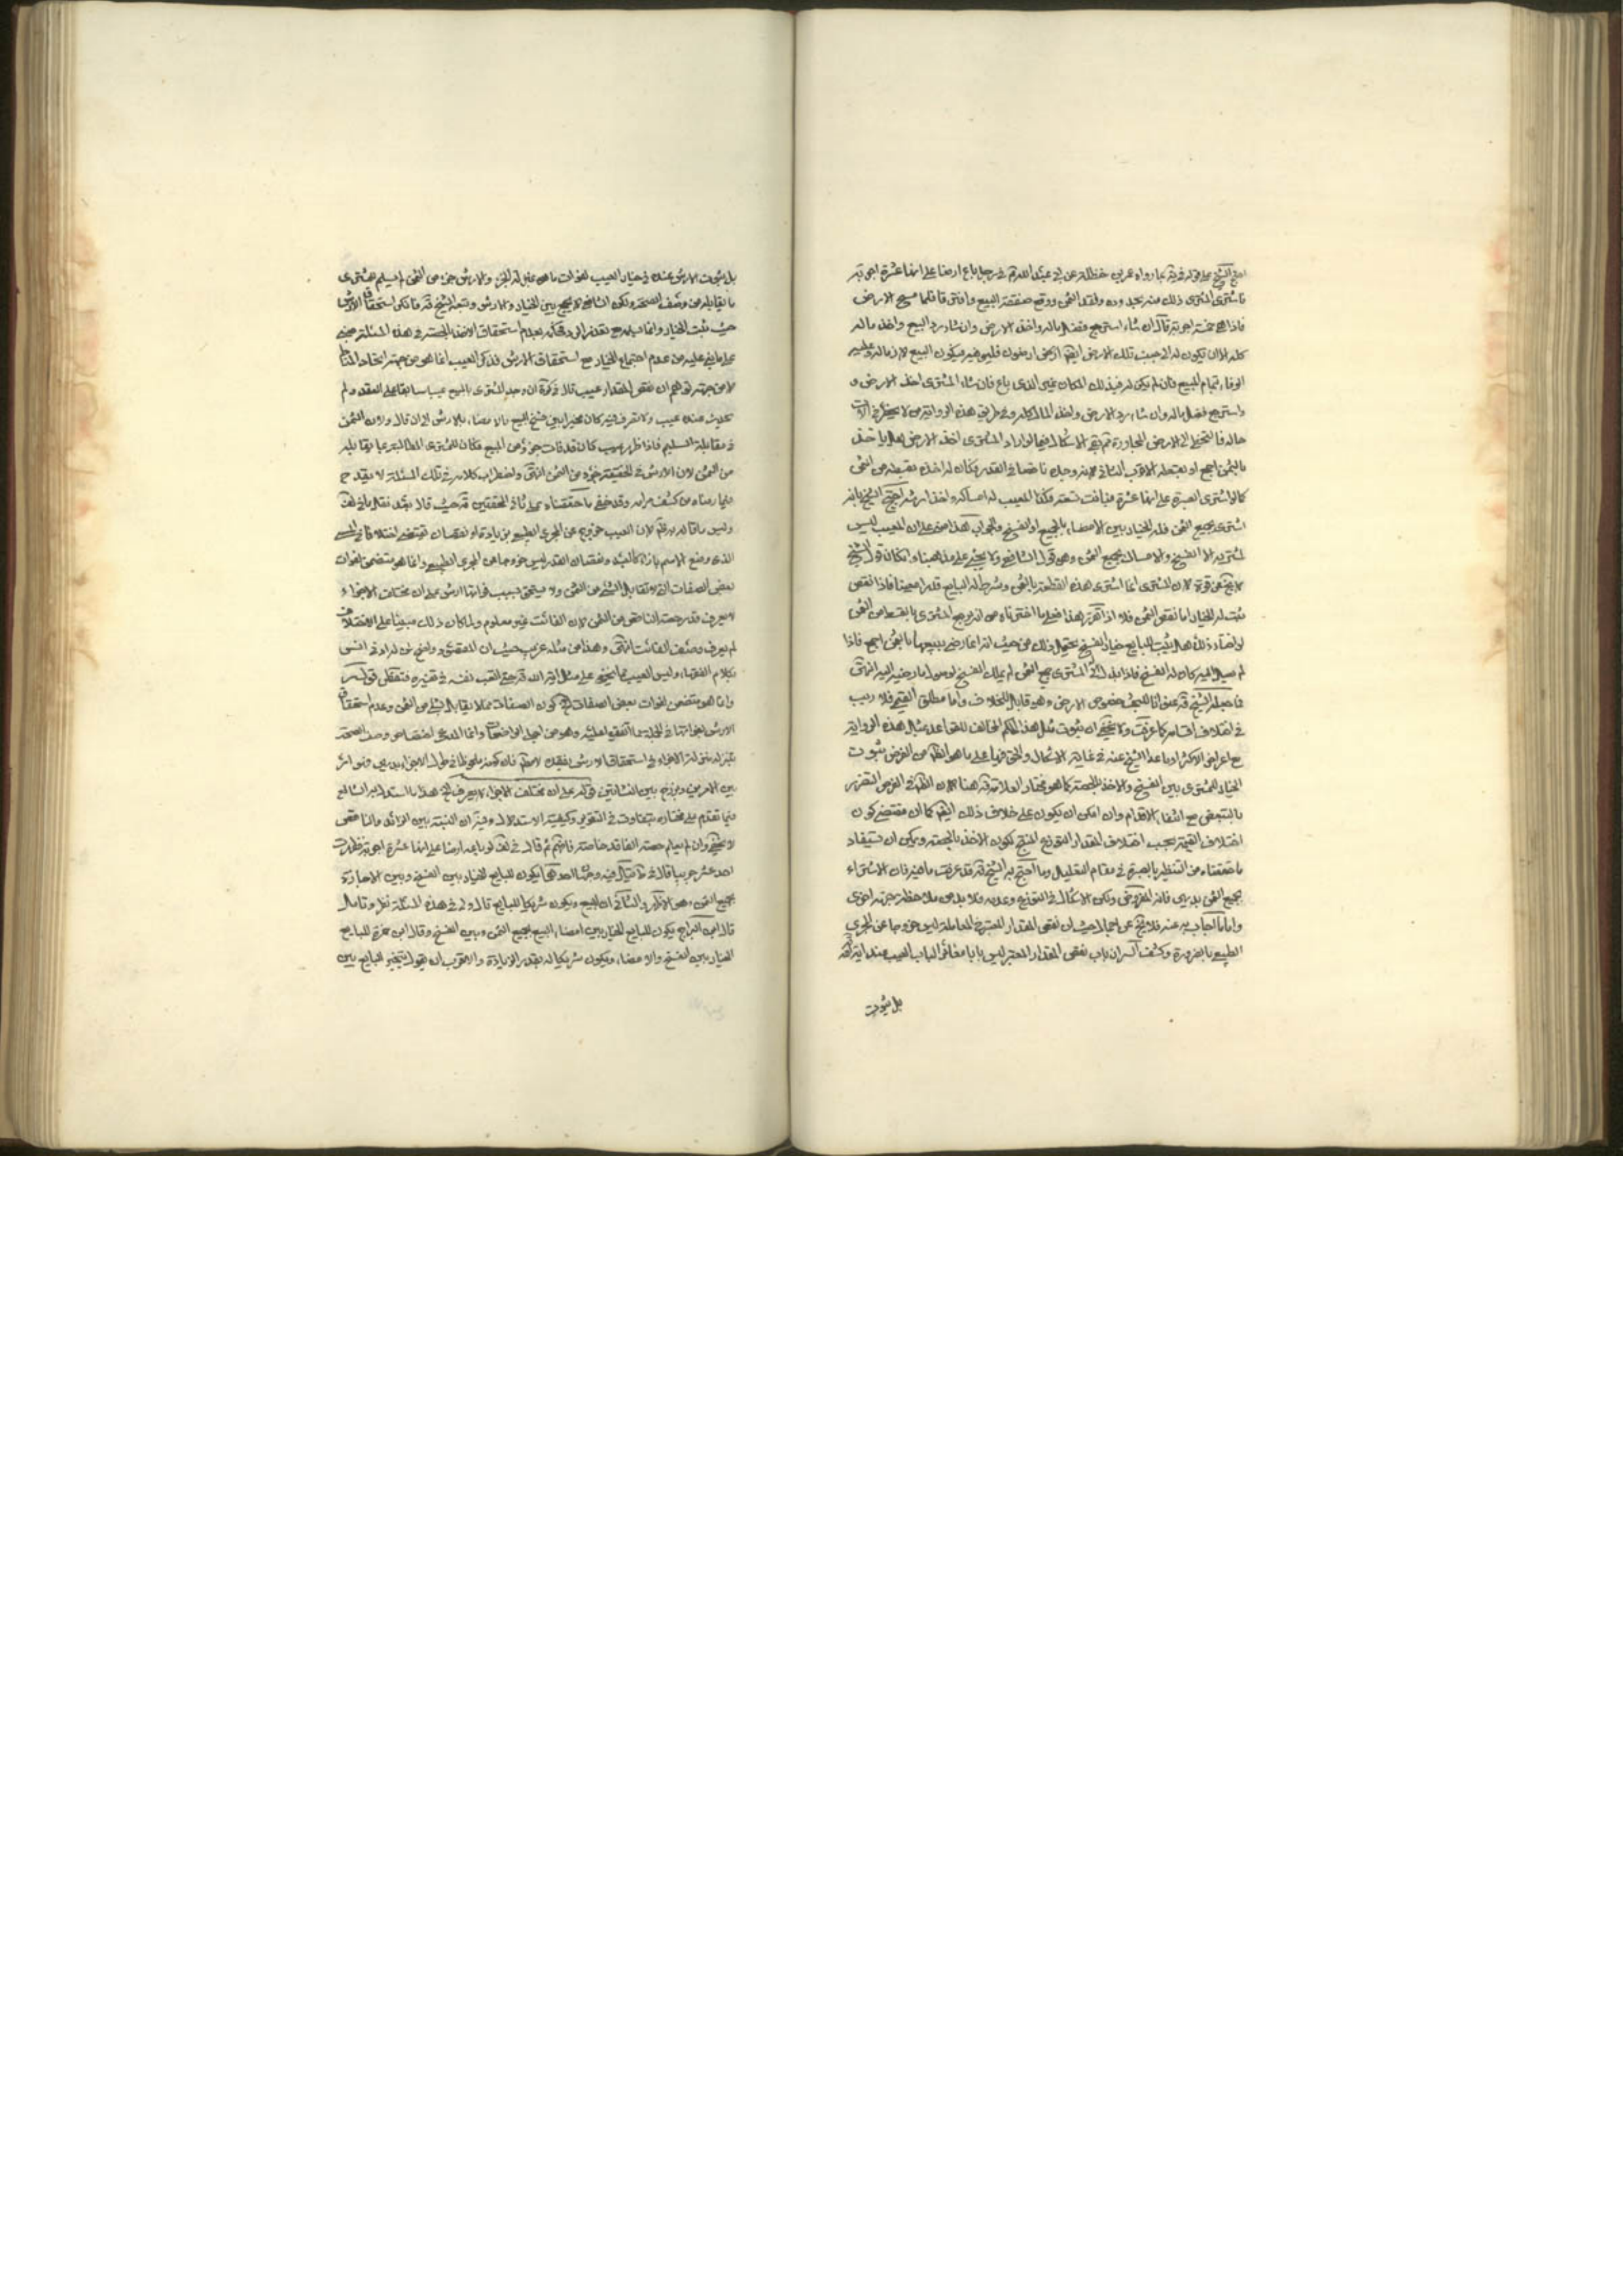 احتج الشيخ على قوله في بما رواه عمر بن حنظلة عن ابي عبد الله في رجل باع ارضا على انها عشرة اجربة
فاشترى المشترى ذلك منه بحدوده ونقد الثمن ووقع صفقة البيع وافترقا فلما مسح الارض
فاذا هي خمسة اجربة قال ان شاء استرجع فضل ماله واخذ الارض وان شاء رد البيع واخذ ماله
كله الا ان يكون له الى جنب تلك الارض ايضا ارضون فليوفيه ويكون البيع لازما له وعليه
الوفاء بتمام البيع فان لم يكن له في ذلك المكان غير الذى باع فان شاء المشترى اخذ الارض و
واسترجع فضل ماله وان شاء رد الارض واخذ المال كله وفي طريق هذه الرواية من لا يحضرني الان
حاله فالتخطى الى الارض المجاورة ثم بقى الاشكال فيما لو اراد المشترى اخذ الارض هل ياخذ
بالثمن اجمع او بقسطه الاقرب الثانى لانه وجده ناقصا في القدر فكان له اخذه بقسطه من الثمن
كما لو اشترى الصبرة على انها عشرة فبانت تسعة وكذا المعيب له امساكه واخذ ارشه احتج الشيخ بانه
اشترى بجميع الثمن فله الخيار بين الامضاء بالجميع او الفسخ والجواب هذا مبنى على ان المعيب ليس
لمشتريه الا الفسخ والامساك بجميع الثمن وهو قول الشافعي ولا يجئ على مذهبنا وان كان قول الشيخ
لا يخ عن قوة لان المشترى انما اشترى هذه القطعة بالثمن وشرط له البايع قدرا معينا فاذا نقص
ثبت له الخيار اما نقص الثمن فلا اذا تقرر هذا فعلى ما اخترناه من انه يرجع المشترى بالقسط من الثمن
لو اختار ذلك هل يثبت للبايع خيار الفسخ يحتمل ذلك من حيث انه انما رضى ببيعها بالثمن اجمع فاذا
لم يصل اليه كان له الفسخ فاذا بذل له المشترى جميع الثمن لم يملك الفسخ لوصول ما رضيه اليه انتهى
في اختلاف اقسامه كما عرفت ولا يخفى ان ثبوت مثل هذا الحكم المخالف للقواعد بمثل هذه الرواية
مع اعراض الاكثر او ما عدا الشيخ عنه في غاية الاشكال والحق فيها على ما هو الظاهر من الفرض ثبوت
الخيار للمشترى بين الفسخ والاخذ بالحصة كما هو مختار العلامة هنا لان الظاهر في الفرض التضرر
بالتبعض مع انتفاء الاقدام وان امكن ان يكون على خلاف ذلك ايضا كما ان مقتضى كون
اختلاف القيمة بحسب اختلاف المقدار التوزيع المنتج لكون الاخذ بالحصة ويمكن ان يستفاد
ما حققناه من التنظير بالصبرة في مقام التعليل وما احتج به الشيخ قد عرفت ما فيه فان الاشتراء
بجميع الثمن بديهى فانه المفروض ولكن الاشكال في التوزيع وعدمه فلا بد من ملاحظة جهة اخرى
واما ما اجاب به عنه فلا يخ عن اجمال حيث ان نقص المقدار المعتبر في المعاملة ليس خروجا عن المجرى
الطبيعي بالضرورة وكشف السر ان باب نقص المقدار المعتبر ليس بابا مغائرا لباب العيب عنده
بل ثبوت
بل ثبوت الارش عنده في خيار العيب لفوات ما هو بمنزلة الجزء والارش جزء من الثمن لم يسلم للمشترى
ما يقابله من وصف الصحة ولكن الشافعي لا يجمع بين الخيار والارش وتبعه الشيخ فانكر استحقاق الارش
حيث ثبت الخيار وانما يسلمه مع تعذر الرد فكانه بعدم استحقاق الاخذ بالحصة في هذه المسئلة مبنى
على ما بنى عليه من عدم اجتماع الخيار مع استحقاق الارش فذكر العيب انما هو من جهة اتحاد المناط
لا من جهة توهم ان نقص المقدار عيب قال في كرة ان وجد المشترى بالمبيع عيبا سابقا على العقد ولم
يحدث عنده عيب ولا تصرف فيه كان مخيرا بين فسخ البيع والامضاء بالارش الى ان قال ولان الثمن
في مقابلة السليم فاذا ظهر عيب كان قد فات جزؤ من المبيع فكان للمشترى المطالبة بما يقابله
من الثمن لان الارش في الحقيقة جزؤ من الثمن انتهى واضطراب كلامه في تلك المسئلة لا يقدح
فيما رمناه من كشف مرامه وقد خفى ما حققناه على ثانى المحققين حيث قال بعد نقل ما في لف
وليس ما قاله بظاهر لان العيب خروج عن المجرى الطبيعي بزيادة او نقصان يقتضى اختلافا في المسمى
الذى وضع الاسم بازائه كالعبد ونقصان القدر ليس خروجا عن المجرى الطبيعي وانما هو متضمن لفوات
بعض الصفات التى لا تقابل بشئ من الثمن ولا يستحق بسبب فواتها ارش على ان مختلف الاجزاء
لا يعرف قدر حصة الناقص من الثمن لان الفائت غير معلوم ولما كان ذلك مبنيا على الاختلاف
لم يعرف وصف الفائت انتهى وهذا من مثله غريب حيث ان المحقق
بكلام الفقهاء وليس العيب مما يخفى على مثل اية الله حتى اتعب نفسه في تفسيره فتفطن قوله
وانما هو متضمن لفوات بعض الصفات اه كون الصفات مما لا يقابل بشئ من الثمن وعدم استحقاق
الارش لفواتها في الجملة مما اتفق اهله وهو من اجلى الواضحات وانما المدعى اختصاص وصف الصحة
بين الامرين وبرزخ بين النشأتين قوله على ان مختلف الاجزاء لا يعرف اه هذا ما استدل به الشافعي
فيما تقدم على مختاره بتفاوت في التقرير وكيفية الاستدلال وفيه ان النسبة بين الزائد والناقص
لا يخفى وان لم يعلم حصة الفاقد خاصة فافهم ثم قال في لف لو باعه ارضا على انها عشرة اجربة فظهرت
احد عشر جريبا قال في ط قيل فيه وجهان احدهما يكون للبايع الخيار بين الفسخ وبين الاجازة
بجميع الثمن وهو الاظهر والثانى ان البيع ويكون شريكا للبايع قال ولى في هذه المسئلة نظر وتامل
قال ابن البراج يكون للبايع الخيار بين امضاء البيع بجميع الثمن وبين الفسخ وقال ابن حمزة للبايع
الخيار بين الفسخ والامضاء ويكون شريكا له بقدر الزيادة والاقرب ان يقول يتخير البايع بين